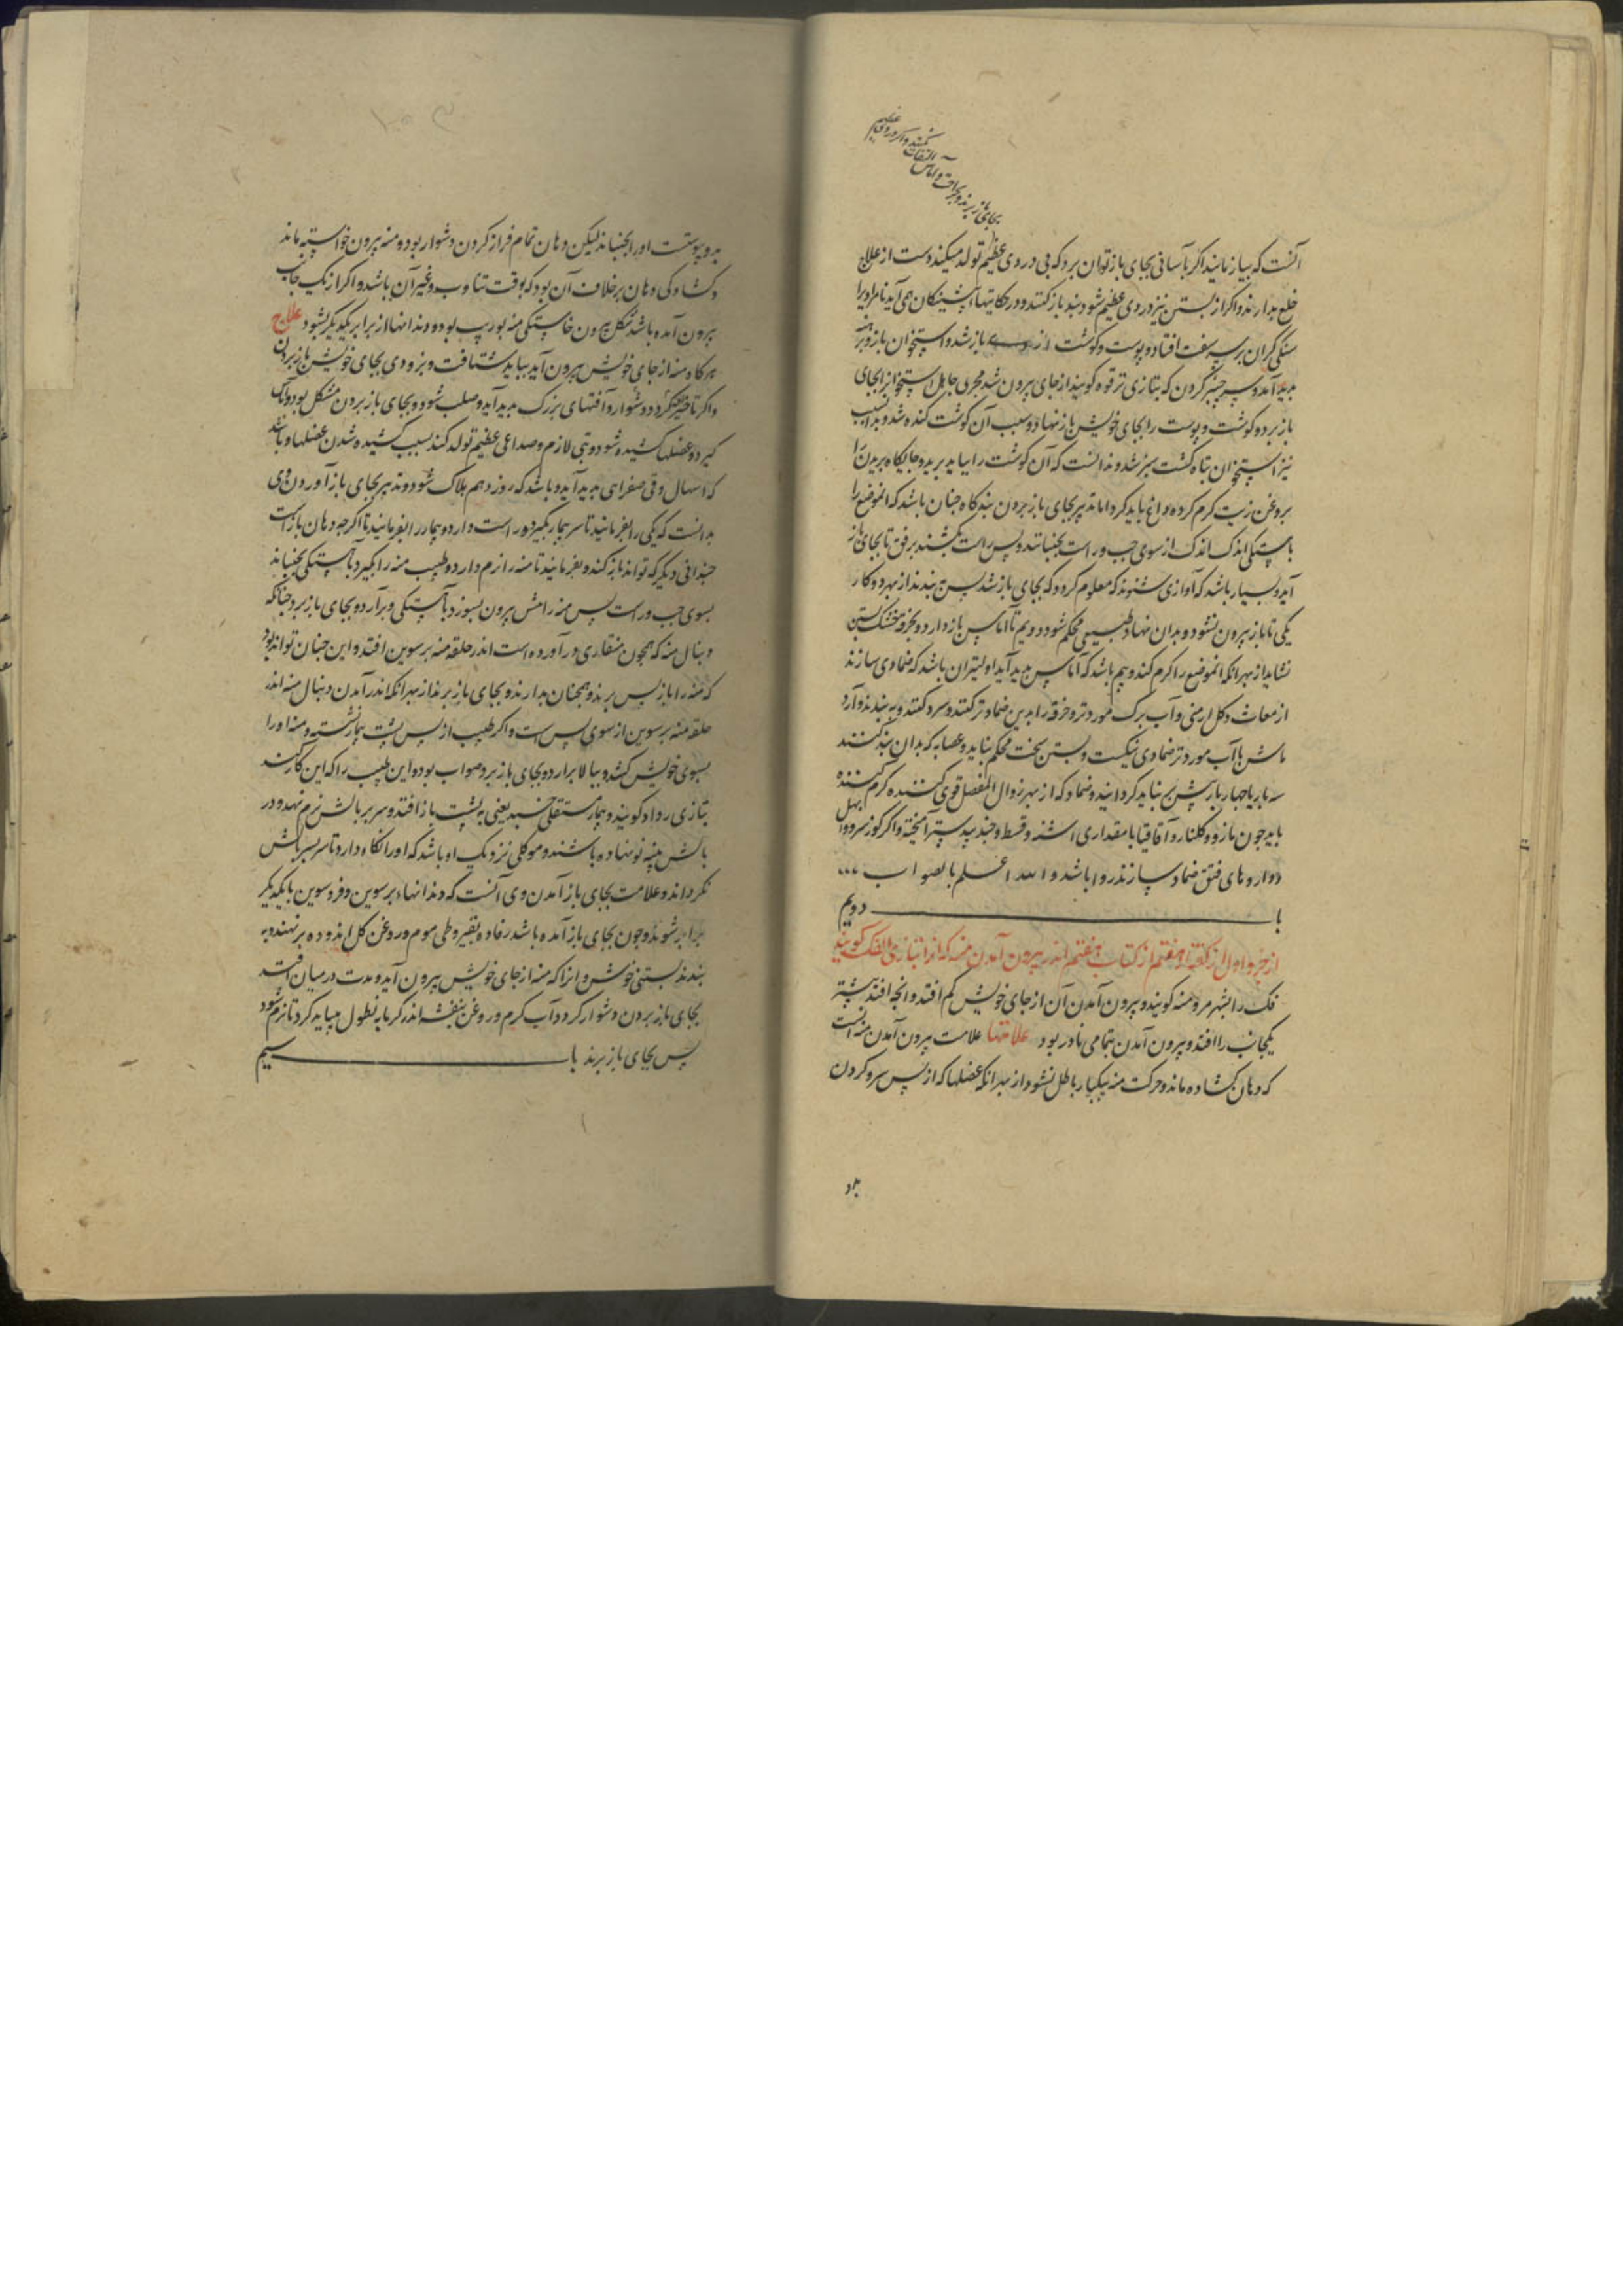 بجای باز برند و بجراحت و آماس التفات نکنند و اگر درد و قیام عظیم
آنست که بیازمایند اگر بآسانی بجای باز توان برد که بی دردی عظیم تولد میکند دست از علاج
خلع بدارند و اگر از بستن نیز دردی عظیم شود بند باز کنند و در حکایتهاء پیشینکان همی آید نامرا ویرا
سنکی کران بر سر سفت افتاد و پوست و کوشت از باز شد و استخوان بازو برهنه
پدید آمد و سر چنبر کردن که بتازی ترقوه کویند از جای بیرون شد مجبری جاهل استخوانرا بجای
باز برد و کوشت و پوست را بجای خویش باز نهاد و بسبب آن کوشت کنده شد و بدان سبب
نیز استخوان تباه کشت سبز شد و ندانست که آن کوشت را بباید برید و جایکاه بریدن را
بروغن زیت کرم کرده داغ باید کرد اما تدبیر بجای باز بردن بندکاه چنان باشد که آنموضع را
باهستکی اندک اندک از سوی چپ و راست بجنبانند و پس راست بکشند برفق تا بجای باز
آید و بسیار باشد که آوازی شنوند که معلوم کردد که بجای باز شد پس ببندند از بهر دو کار
یکی تا باز بیرون نشود و بدان نهاد طبیعی محکم شود و دویم تا آماس باز دارد و بخرقه خشک بستن
نشاید از بهر انکه آنموضع را کرم کند و بیم باشد که آماس پدید آید اولیتر آن باشد که ضمادی سازند
از مغاث و کل ارمنی و آب برک مورد تر و خرقه را بدین ضماد تر کنند و سرد کنند و ببندند و آرد
ماش با آب مورد تر ضمادی نیکست و بستن سخت محکم نباید و عصابه که بدان بند کنند
سه بار یا چهار بار بیش نباید کردانید و ضماد که از بهر زوال المفصل قوی کننده کرم کننده
باید چون مازو و کلنار و آقاقیا با مقداری اشنه و قسط و جندبیدستر آمیخته و اکر کوز سرو و ابهل
و داروهای فتق ضماد سازند روا باشد و الله اعلم بالصواب ...
با ــــــــــــ دویم
از جزو اول از کفتار هفتم از کتاب هفتم اندر بیرون آمدن منه که انرا بتازی الفک کویند
فک را بشهر مرو منه کویند و بیرون آمدن آن از جای خویش کم افتد و انچه افتد بیشتر
یکجانب را افتد و بیرون آمدن بتمامی نادر بود علامتها علامت بیرون آمدن منه انست
که دهان کشاده ماند و حرکت منه بیکبار باطل نشود از بهر انکه عضلها که از پس سر و کردن
بدو
بدو پیوستست او را بجنباند لیکن دهان تمام فراز کردن دشوار بود و منه بیرون خواسته ماند
و کشادکی دهان بر خلاف آن بود که بوقت تثاوب و غیر آن باشد و اکر از یک جانب
بیرون آمده باشد شکل بیرون خاستکی منه بوریب بود و دندانها از برابر یکدیکر بشود علاج
هرکاه منه از جای خویش بیرون آید بباید شتافت و بزودی بجای خویش باز بردن
و اکر تاخیر کنند کردد دشوار و آفتهای بزرک پدید آید و صلب شود و بجای باز بردن مشکل بود و آماس
کیرد و عضلها کشیده شود و تبی لازم و صداعی عظیم تولد کند بسبب کشیده شدن عضلها و باشد
که اسهال و قی صفرایی پدید آید و باشد که روز دهم هلاک شود و تدبیر بجای باز آوردن وی
بدانست که یکی را بفرمایند تا سر بیمار بکیرد و راست دارد و بیمار را بفرمایند تا اکر چه دهان بازاست
چندانی دیکر که تواند باز کند و بفرمایند تا منه را نرم دارد و طبیب منه را بکیرد و باهستکی بجنباند
بسوی چپ و راست پس منه را مش بیرون بسوزد باهستکی و برآرد و بجای باز برد چنانکه
دنبال منه که همچون منقاری درآورده است اندر حلقه منه برسوین افتد و این چنان تواند بود
که منه را باز پس برند و همچنان بدارند و بجای باز برند از بهر انکه اندر آمدن دنبال منه اندر
حلقه منه برسوین از سوی پس است و اکر طبیب از پس پشت بیمار نشیند و منه او را
بسوی خویش کشد و ببالا برارد و بجای باز برد صواب بود و این طبیب را که این کار کند
بتازی رداد کویند و بیمار مستقلی خسبد یعنی به پشت باز افتد و سر بر بالش نرم نهد و در
بالش پنبه نو نهاده باشند و موکلی نزدیک او باشد که او را نکاه دارد تا سر بر بالش
نکرداند و علامت بجای باز آمدن وی آنست که دندانهاء برسوین و فروسوین با یکدیکر
برابر شوند و چون بجای باز آمده باشد رفاده بقیروطی موم و روغن کل اندوده برنهند و به
بندند بستنی خوش و انرا که منه از جای خویش بیرون آید و مدت درمیان افتد
بجای باز بردن دشوار کردد آب کرم و روغن بنفشه اندر کرمابه نطول میباید کرد تا نرم شود
پس بجای باز برند با ــــــــــــ سیم